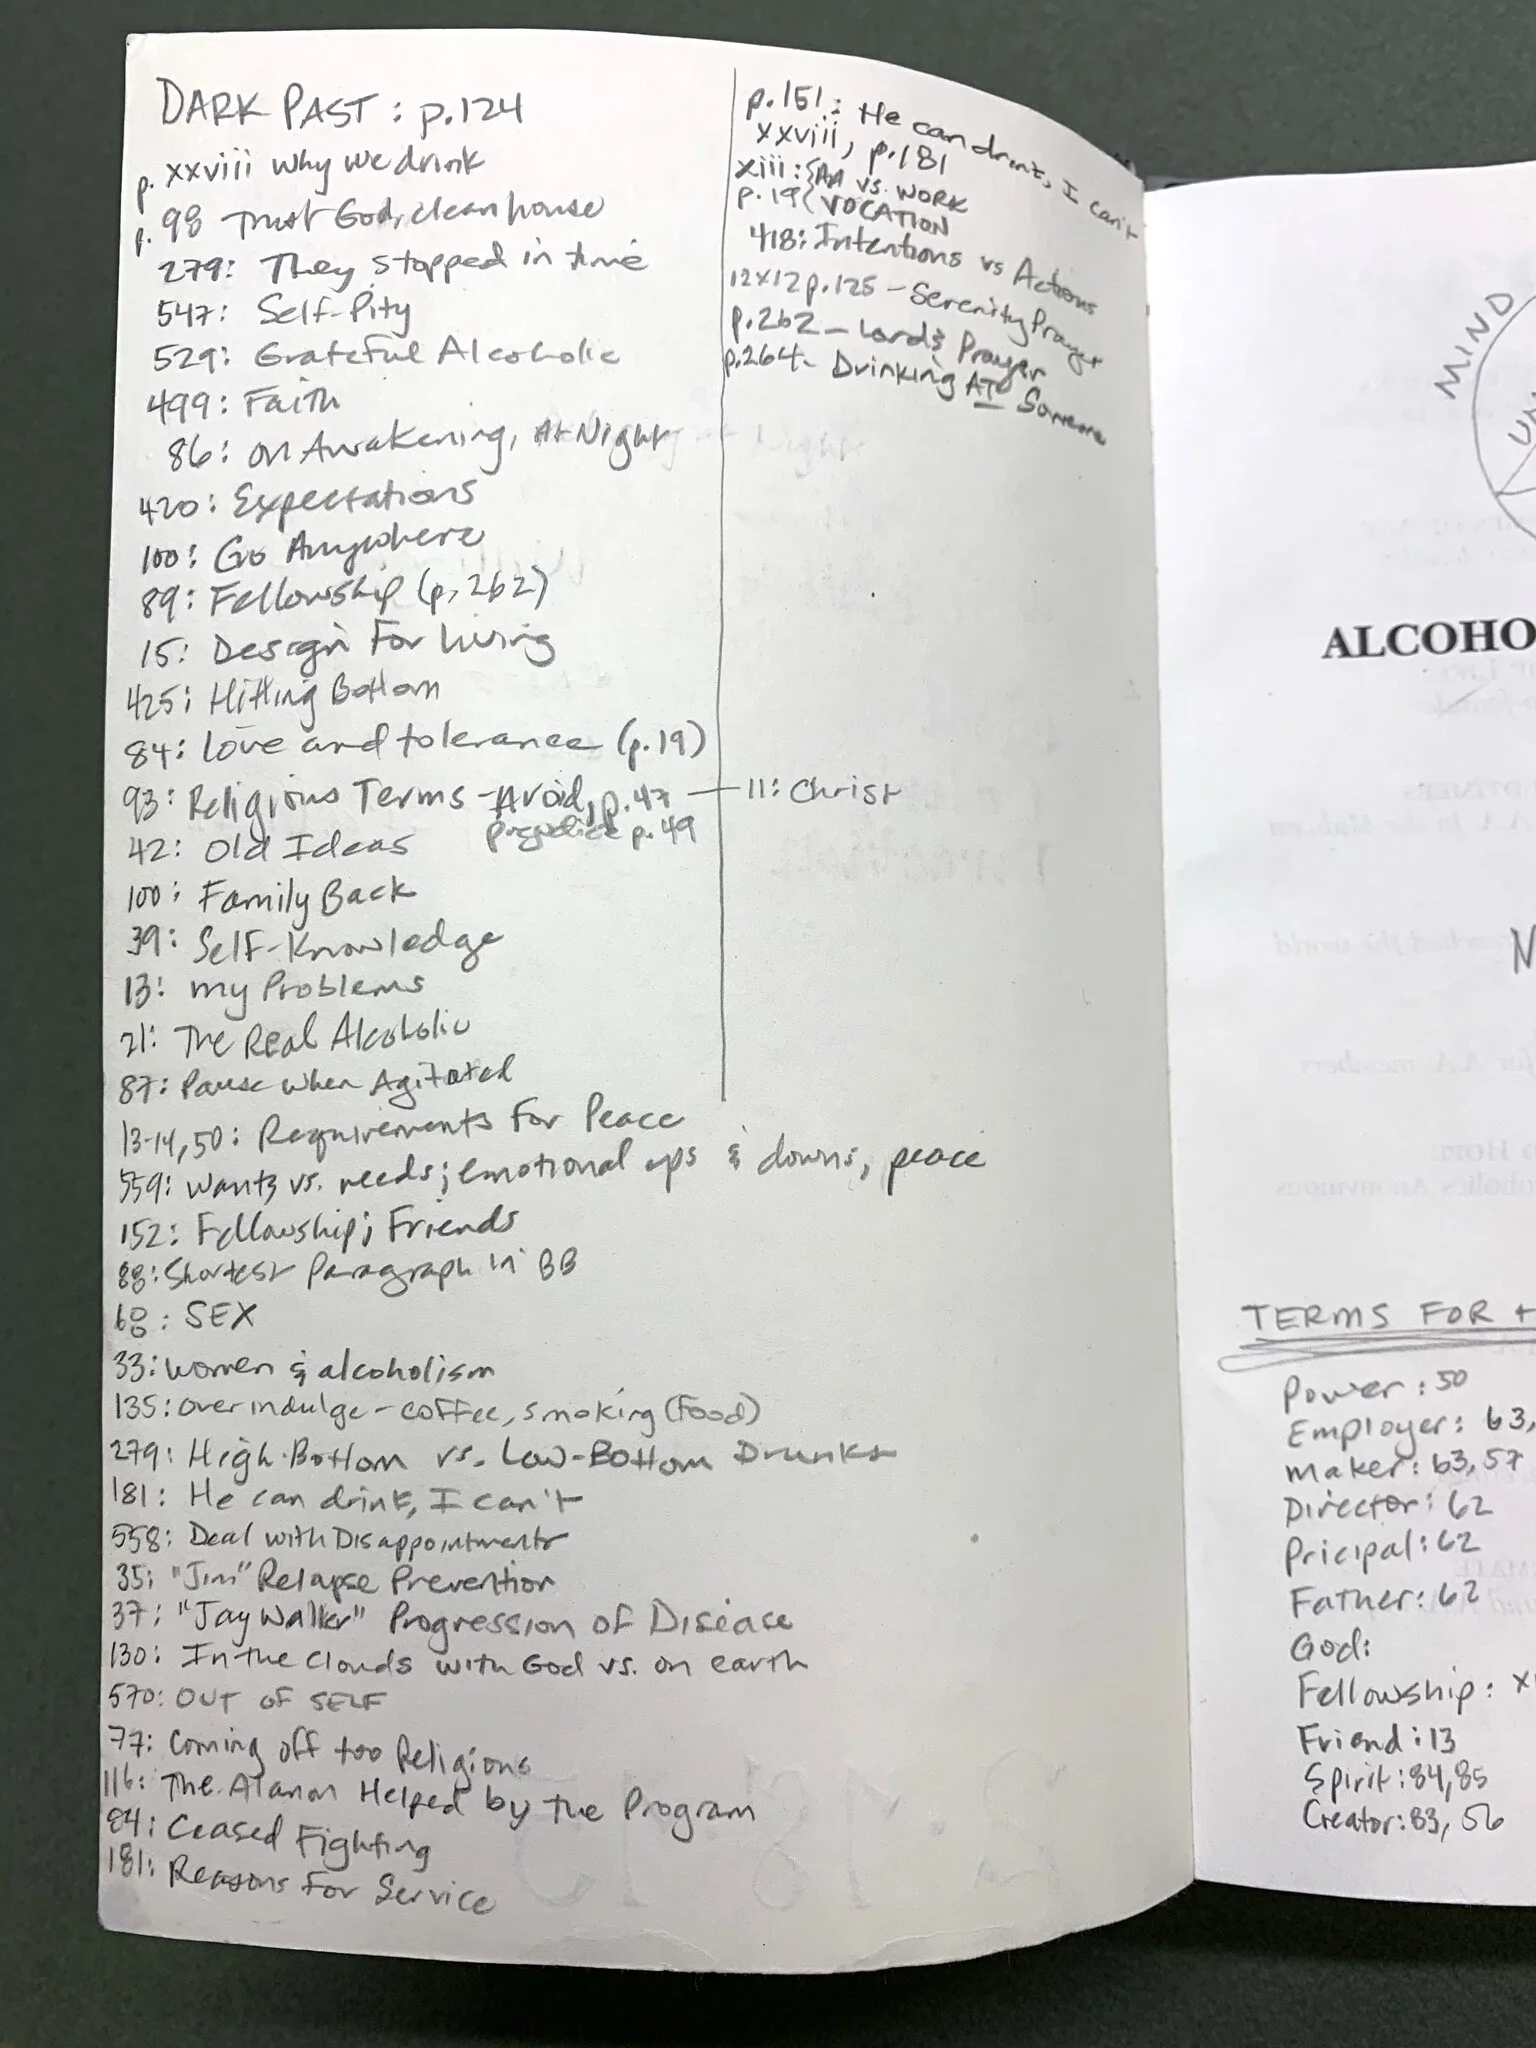 DARK PAST : p.124
p. xxviii Why we drink
p. 98 Trust God, clean house
279: They stopped in time
547: Self-Pity
529: Grateful Alcoholic
499: Faith
86: on Awakening, At Night
420: Expectations
100: Go Anywhere
89: Fellowship (p, 262)
15: Design For Living
425: Hitting Bottom
84: Love and tolerance (p.19)
93: Religious Terms - Avoid, p.47 — 11: Christ
prejudice p.49
42: Old Ideas
100: Family Back
39: Self-Knowledge
13: my Problems
21: The Real Alcoholic
87: Pause when Agitated
13-14, 50: Requirements For Peace
559: Wants vs. needs; emotional ups & downs, peace
152: Fellowship; Friends
88: Shortest Paragraph in BB
68: SEX
33: women & alcoholism
135: over indulge - coffee, smoking (Food)
279: High-Bottom vs. Low-Bottom Drunks
181: He can drink, I can't
558: Deal with Disappointments
35: "Jim" Relapse Prevention
37: "Jay Walker" Progression of Disease
130: In the Clouds with God vs. on earth
570: OUT OF SELF
77: Coming off too Religious
116: The Alanon Helped by the Program
84: Ceased Fighting
181: Reasons For Service
p.151: He can drink, I can't
xxviii, p.181
xiii: { AA vs. WORK
p.19 { VOCATION
418: Intentions vs Actions
12x12 p.125 - Serenity Prayer
p.262 - Lord's Prayer
p.264 - Drinking AT Someone
MIND
ALCOHO
TERMS FOR
Power: 50
Employer: 63,
Maker: 63, 57
Director: 62
Pricipal: 62
Father: 62
God:
Fellowship:
Friend: 13
Spirit: 84, 85
Creator: 83, 56